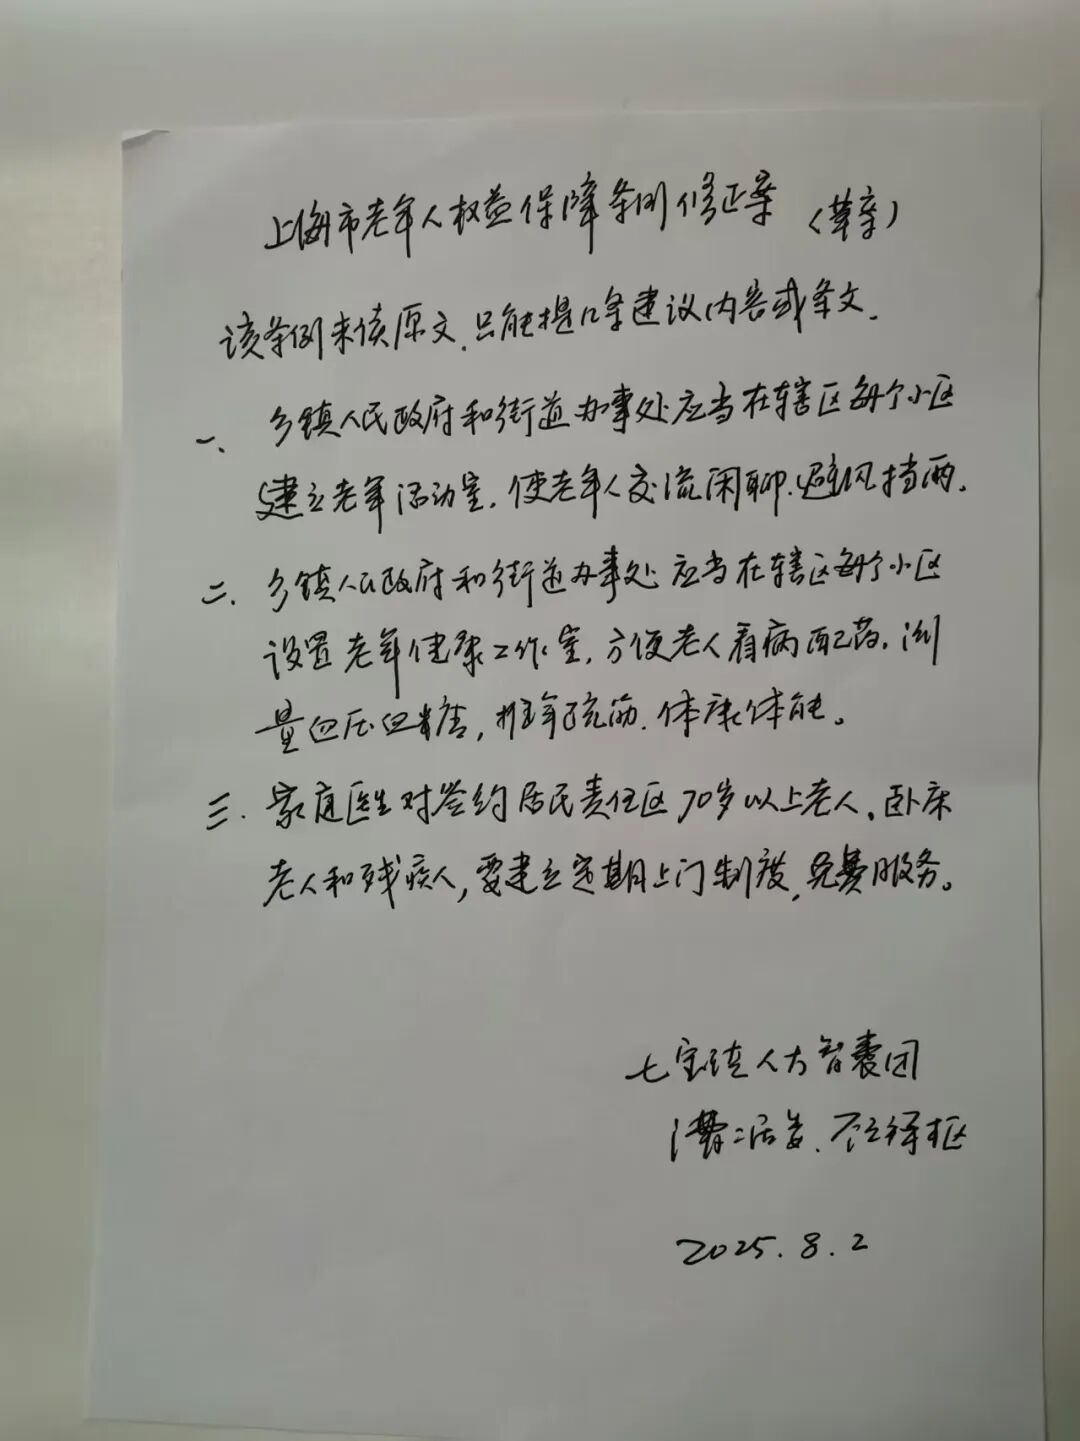 上海市老年人权益保障条例修正案（草案）
该条例未读原文，只能提几条建议内容或条文。
一、乡镇人民政府和街道办事处应当在辖区每个小区
建立老年活动室，使老年人交流闲聊、避风挡雨。
二、乡镇人民政府和街道办事处应当在辖区每个小区
设置老年健康工作室，方便老人看病配药，测
量血压血糖，推拿疏筋，体康体能。
三、家庭医生对签约居民责任区70岁以上老人，卧床
老人和残疾人，要建立定期上门制度，免费服务。
七宝镇人大智囊团
二居委
2025.8.2